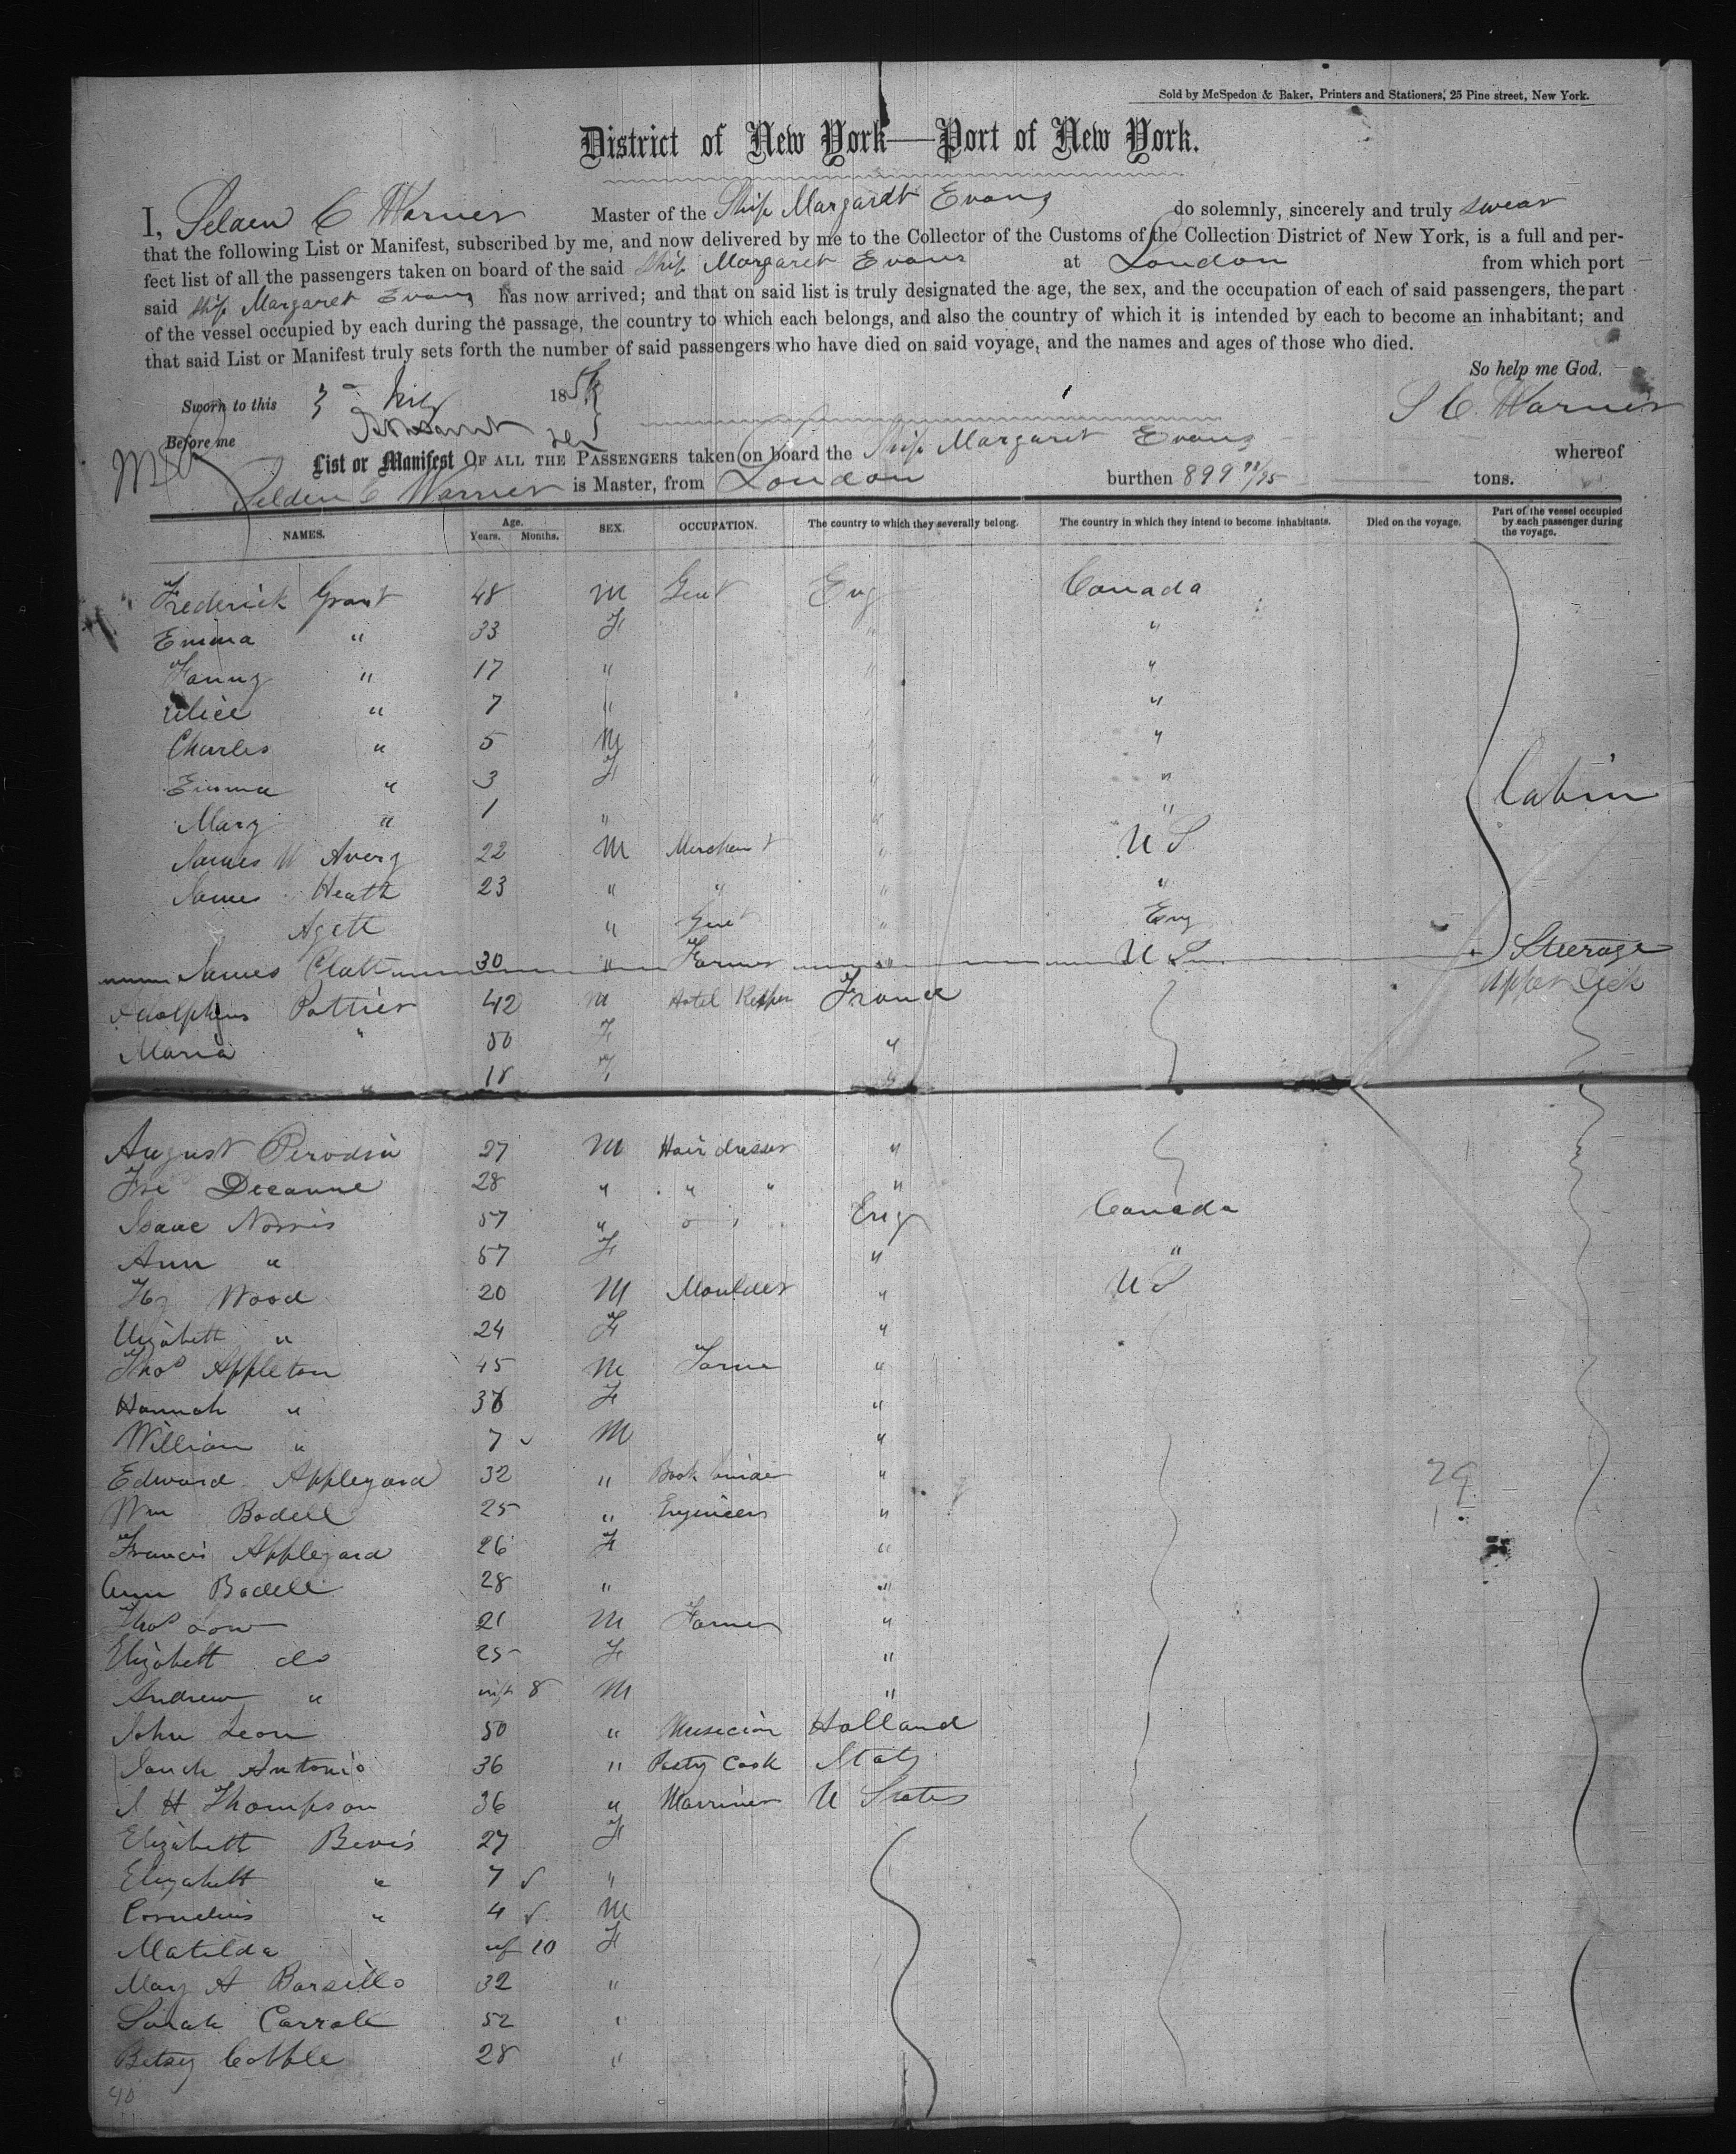 Sold by McSpedon & Baker, Printers and Stationers, 25 Pine street, New York.
District of New York—Port of New York.
I, Selden C Warner Master of the Ship Margaret Evans do solemnly, sincerely and truly swear
that the following List or Manifest, subscribed by me, and now delivered by me to the Collector of the Customs of the Collection District of New York, is a full and per-
fect list of all the passengers taken on board of the said Ship Margaret Evans at London from which port
said Ship Margaret Evans has now arrived; and that on said list is truly designated the age, the sex, and the occupation of each of said passengers, the part
of the vessel occupied by each during the passage, the country to which each belongs, and also the country of which it is intended by each to become an inhabitant; and
that said List or Manifest truly sets forth the number of said passengers who have died on said voyage, and the names and ages of those who died.
So help me God.
Sworn to this 3 185
S C Warner
Before me
List or Manifest OF ALL THE PASSENGERS taken on board the Ship Margaret Evans whereof
Selden C Warner is Master, from London burthen 899 tons.
NAMES. Age. Years. Months. SEX. OCCUPATION. The country to which they severally belong. The country in which they intend to become inhabitants. Died on the voyage. Part of the vessel occupied by each passenger during the voyage.
Frederick Grant 48 M Gent Eng Canada
Emma " 33 F " "
Fanny " 17 " " "
Alice " 7 " "
Charles " 5 M " "
Emma " 3 F " "
Mary " 1 " " "
Cabin
James W Avery 22 M Merchant " U S
James Heath 23 " " " "
Agett " Gent " Eng
James Clatt 30 " Farmer " U S Steerage
Adolphus Pottier 42 M Hotel Keeper France Upper Deck
Maria " 50 F "
" 18 F "
August Perodin 27 M Hair dresser "
Fre Decanne 28 " " " "
Isaac Norris 57 " Eng Canada
Ann " 57 F " "
Hy Wood 20 M Moulder " U S
Elizabeth " 24 F "
Thos Appleton 45 M Farme "
Hannah " 36 F "
William " 7 M "
Edward Appleyard 32 " Book binder "
29
Wm Bodell 25 " Engineer "
1
Francis Appleyard 26 F "
Ann Bodell 28 " "
Thos Low 21 M Farmer "
Elizabett do 25 F "
Andrew " inft 8 M "
John Leon 50 " Musician Holland
Antonio 36 " Pasty Cook Italy
J H Thompson 36 " Marriner U States
Elizabett Bevis 27 F
Elizabett " 7 "
Cornelius " 4 M
Matilda inf 10 F
Mary A Borsillo 32 "
Sarah Carroll 52 "
Betsy Cobble 28 "
40